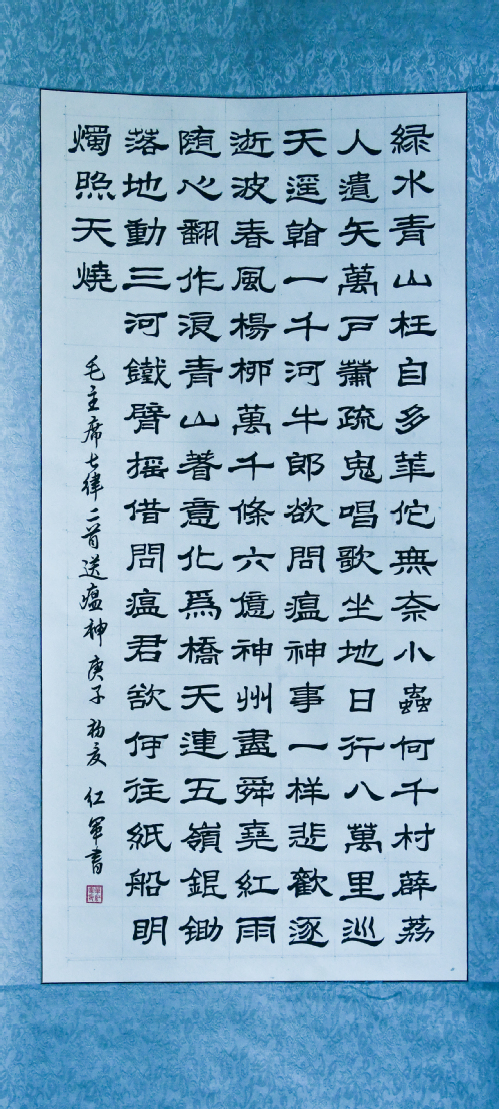 緑水青山枉自多華佗無奈小蟲何千村薜荔
人遺矢萬戶蕭疏鬼唱歌坐地日行八萬里巡
天遥看一千河牛郎欲問瘟神事一样悲歡逐
逝波春風楊柳萬千條六億神州盡舜堯紅雨
随心翻作浪青山着意化爲橋天連五嶺銀鋤
落地動三河鐵臂摇借問瘟君欲何往紙船明
燭照天燒
毛主席七律二首送瘟神 庚子初夏 仁軍書